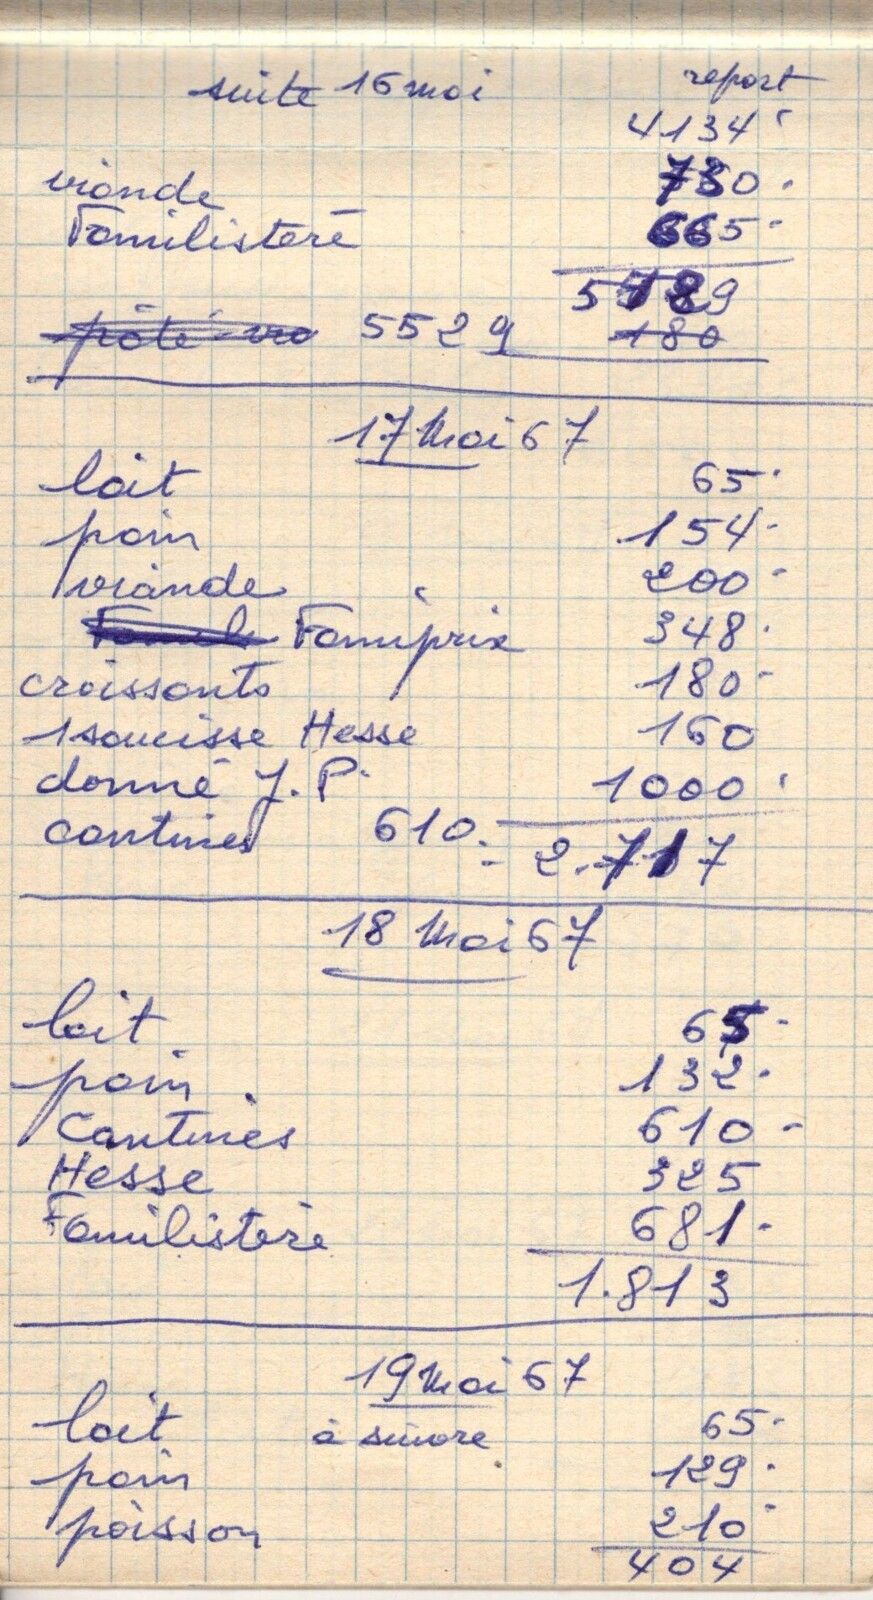 suite 16 mai report
4134
viande 730.
Familistère 665.
5529 180
17 Mai 67
lait 65.
pain 154.
viande 200.
Famiprix 348.
croissants 180.
1 saucisse Hesse 160
donné J. P. 1000
cantines 610. 2.717
18 Mai 67
lait 65.
pain 132.
Cantines 610.
Hesse 325
Familistère 681.
1.813
19 Mai 67
lait à suivre 65.
pain 129.
poisson 210
404